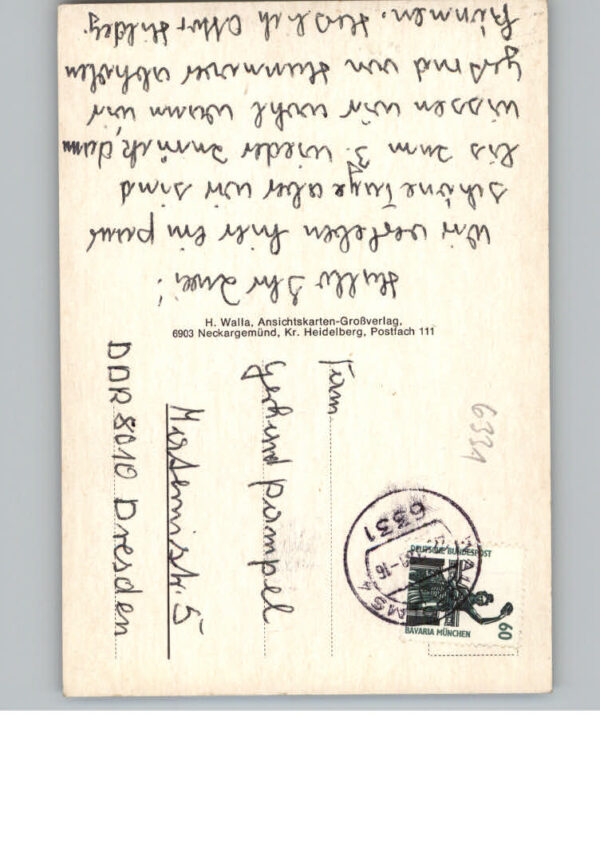 Hallo Ihr Zwei!
Wir verleben hier ein paar
schöne Tage aber wir sind
bis zum 3. wieder zurück, dann
wissen wir wohl wann wir
Gerland von Hannover abholen
können. Herzlich Otto + Hildeg.
H. Walla, Ansichtskarten-Großverlag,
6903 Neckargemünd, Kr. Heidelberg, Postfach 111
Fam.
Pampel
5
DDR 8010 Dresden
6331
6331
DEUTSCHE BUNDESPOST
BAVARIA MÜNCHEN
60